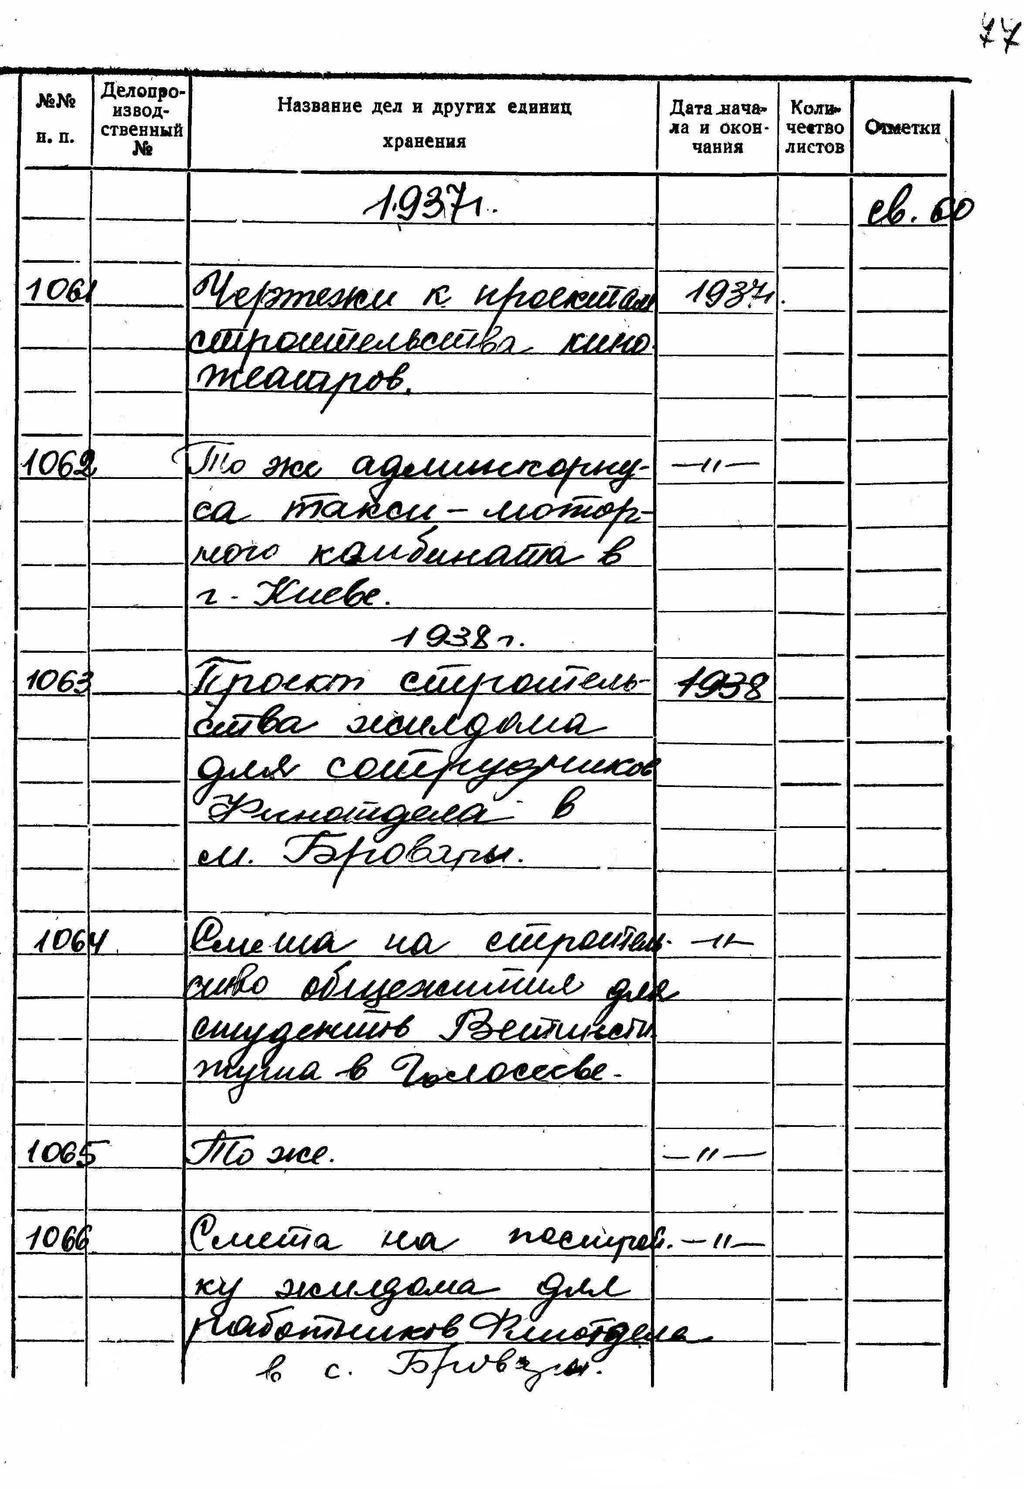 77
№№ п. п.
Делопро-
извод-
ственный
№
Название дел и других единиц
хранения
Дата нача-
ла и окон-
чания
Коли-
чество
листов
Отметки
1937г.
св. 60
1061 Чертежи к проектам 1937г.
строительства кино-
театров.
1062 То же админкорпу- —"—
са такси-мотор-
ного комбината в
г. Киеве.
1938 г.
1063 Проект строитель- 1938
ства жилдома
для сотрудников
Финотдела в
м. Бровары.
1064 Смета на строитель- —"—
ство общежития для
студентов Ветинсти-
тута в Голосееве.
1065 То же. —"—
1066 Смета на построй- —"—
ку жилдома для
работников Финотдела
в с. Бровары.